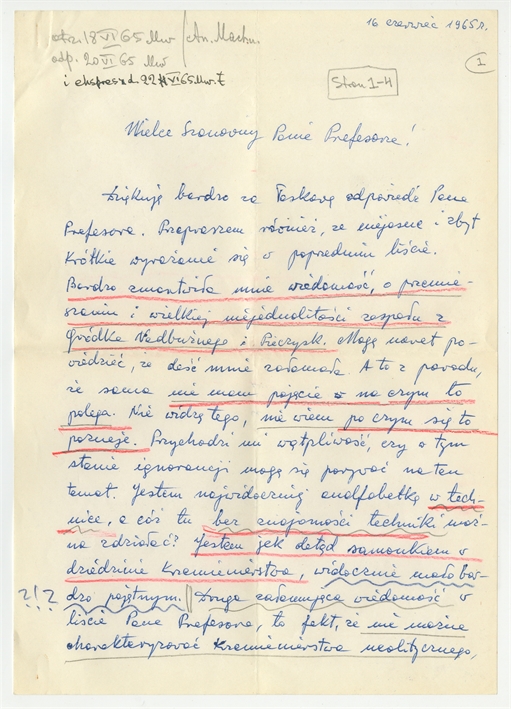 otrz. 18 VI 65 Mw / An. Machn.
odp. 20 VI 65 Mw
i ekspres d. 22 VI 65 Mw.
16 czerwiec 1965 r.
1
Stron 1-4
Wielce Szanowny Panie Profesorze!
Dziękuję bardzo za łaskawą odpowiedź Pana
Profesora. Przepraszam również, za niejasne i zbyt
krótkie wyrażanie się w poprzednim liście.
Bardzo zmartwiła mnie wiadomość, o przemie-
szaniu i wielkiej niejednolitości zespołu z
Gródka Nadbużnego i Pieczysk. Mogę nawet po-
wiedzieć, że dość mnie załamała. A to z powodu,
że sama nie mam pojęcia - na czym to
polega. Nie widzę tego, nie wiem po czym się to
poznaje. Przychodzi mi wątpliwość, czy o tym
stanie ignorancji mogę się porywać na ten
temat. Jestem najwidoczniej analfabetką w tech-
nice, a cóś tu bez znajomości techniki moż-
na zdziałać? Jestem jak dotąd samoukiem w
dziedzinie krzemieniarstwa, widocznie mało bar-
?!? dzo pojętnym. || Druga załamująca wiadomość w
liście Pana Profesora, to fakt, że nie można
charakteryzować krzemieniarstwa neolitycznego,